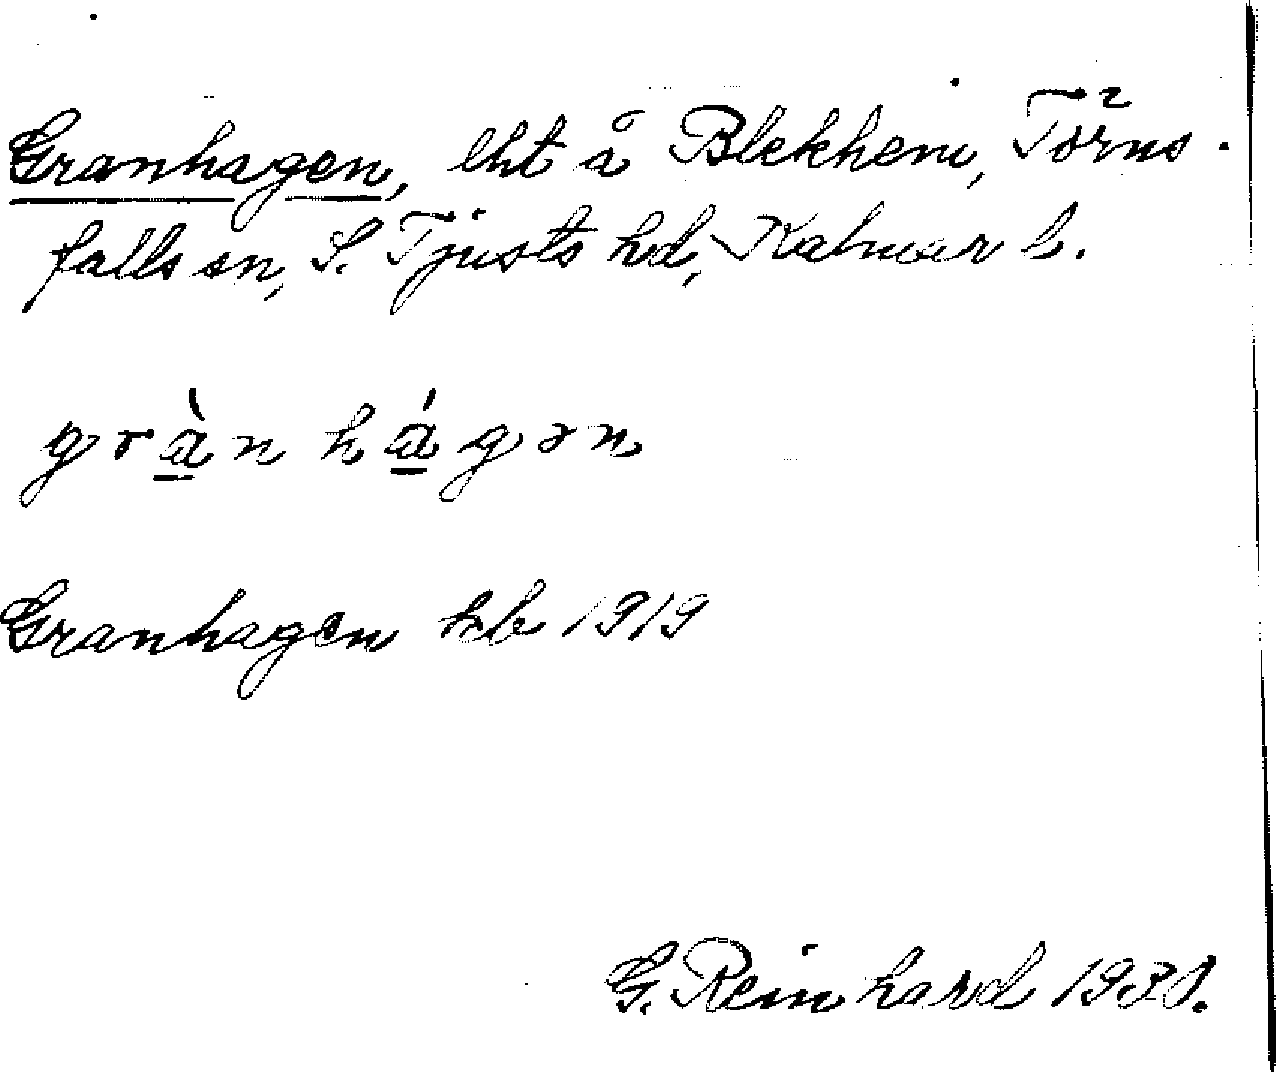 Granhagen, lht å Blekhem, Törns-
falls sn, S. Tjusts hd, Kalmar l.
gràn hágən
Granhagen kb 1919
G. Reinhard 1931.